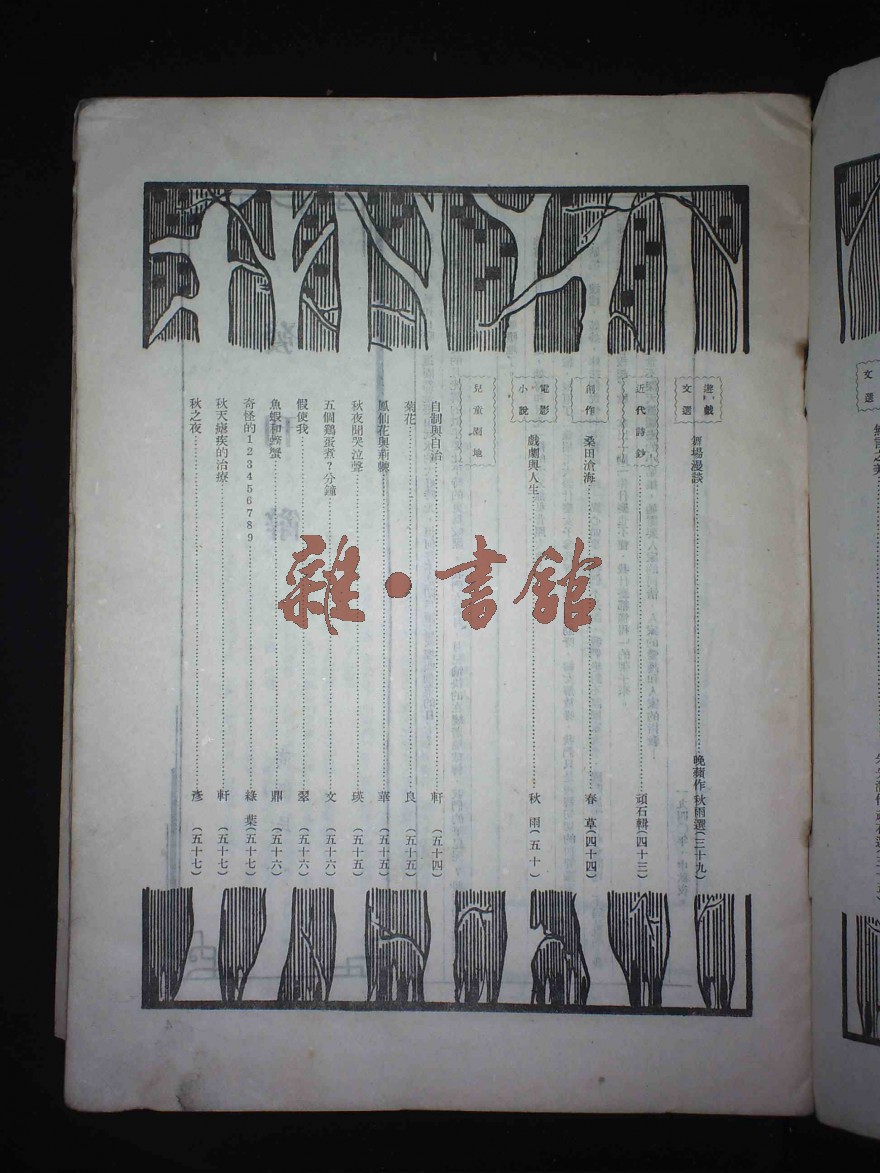 遊戲
文選
酒場漫談……晚蘋作 秋雨選(三十九)
近代詩鈔
……頑石輯(四十三)
創作
桑田滄海……春草(四十四)
電影
小說
戲劇與人生……秋雨(五十)
兒童園地
自制與自治……軒(五十四)
菊花……良(五十五)
鳳仙花與荊棘……華(五十五)
秋夜聞哭泣聲……瑛(五十五)
五個鷄蛋煮?分鐘……文(五十六)
假使我……翠(五十六)
魚蝦和螃蟹……鼎(五十六)
奇怪的123456789……綠葉(五十七)
秋天瘧疾的治療……軒(五十七)
秋之夜……彥(五十七)
雜·書館
文選